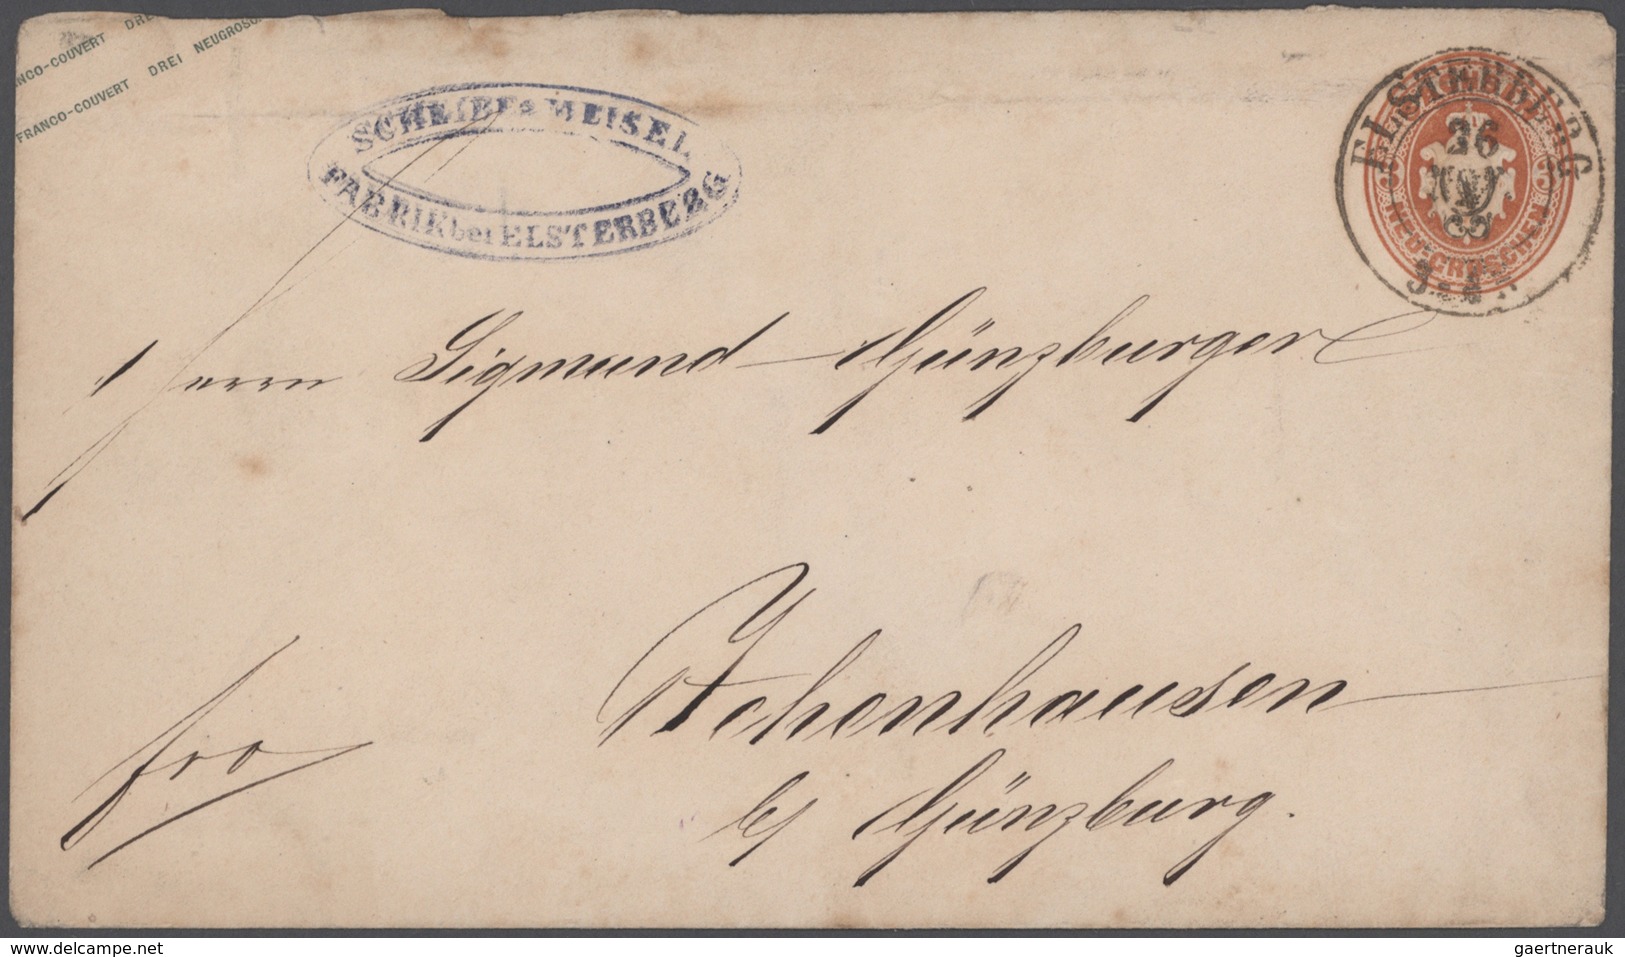 FRANCO-COUVERT DREI NEUGROSCHEN
FRANCO-COUVERT DREI
SCHEIBE & MEISEL
FABRIK bei ELSTERBERG
ELSTERBERG
26
NOV
65
NEU-GROSCHEN
Herrn Sigmund Günzburger
Ichenhausen
b/ Günzburg.
fro
www.delcampe.net
gaertnerauk